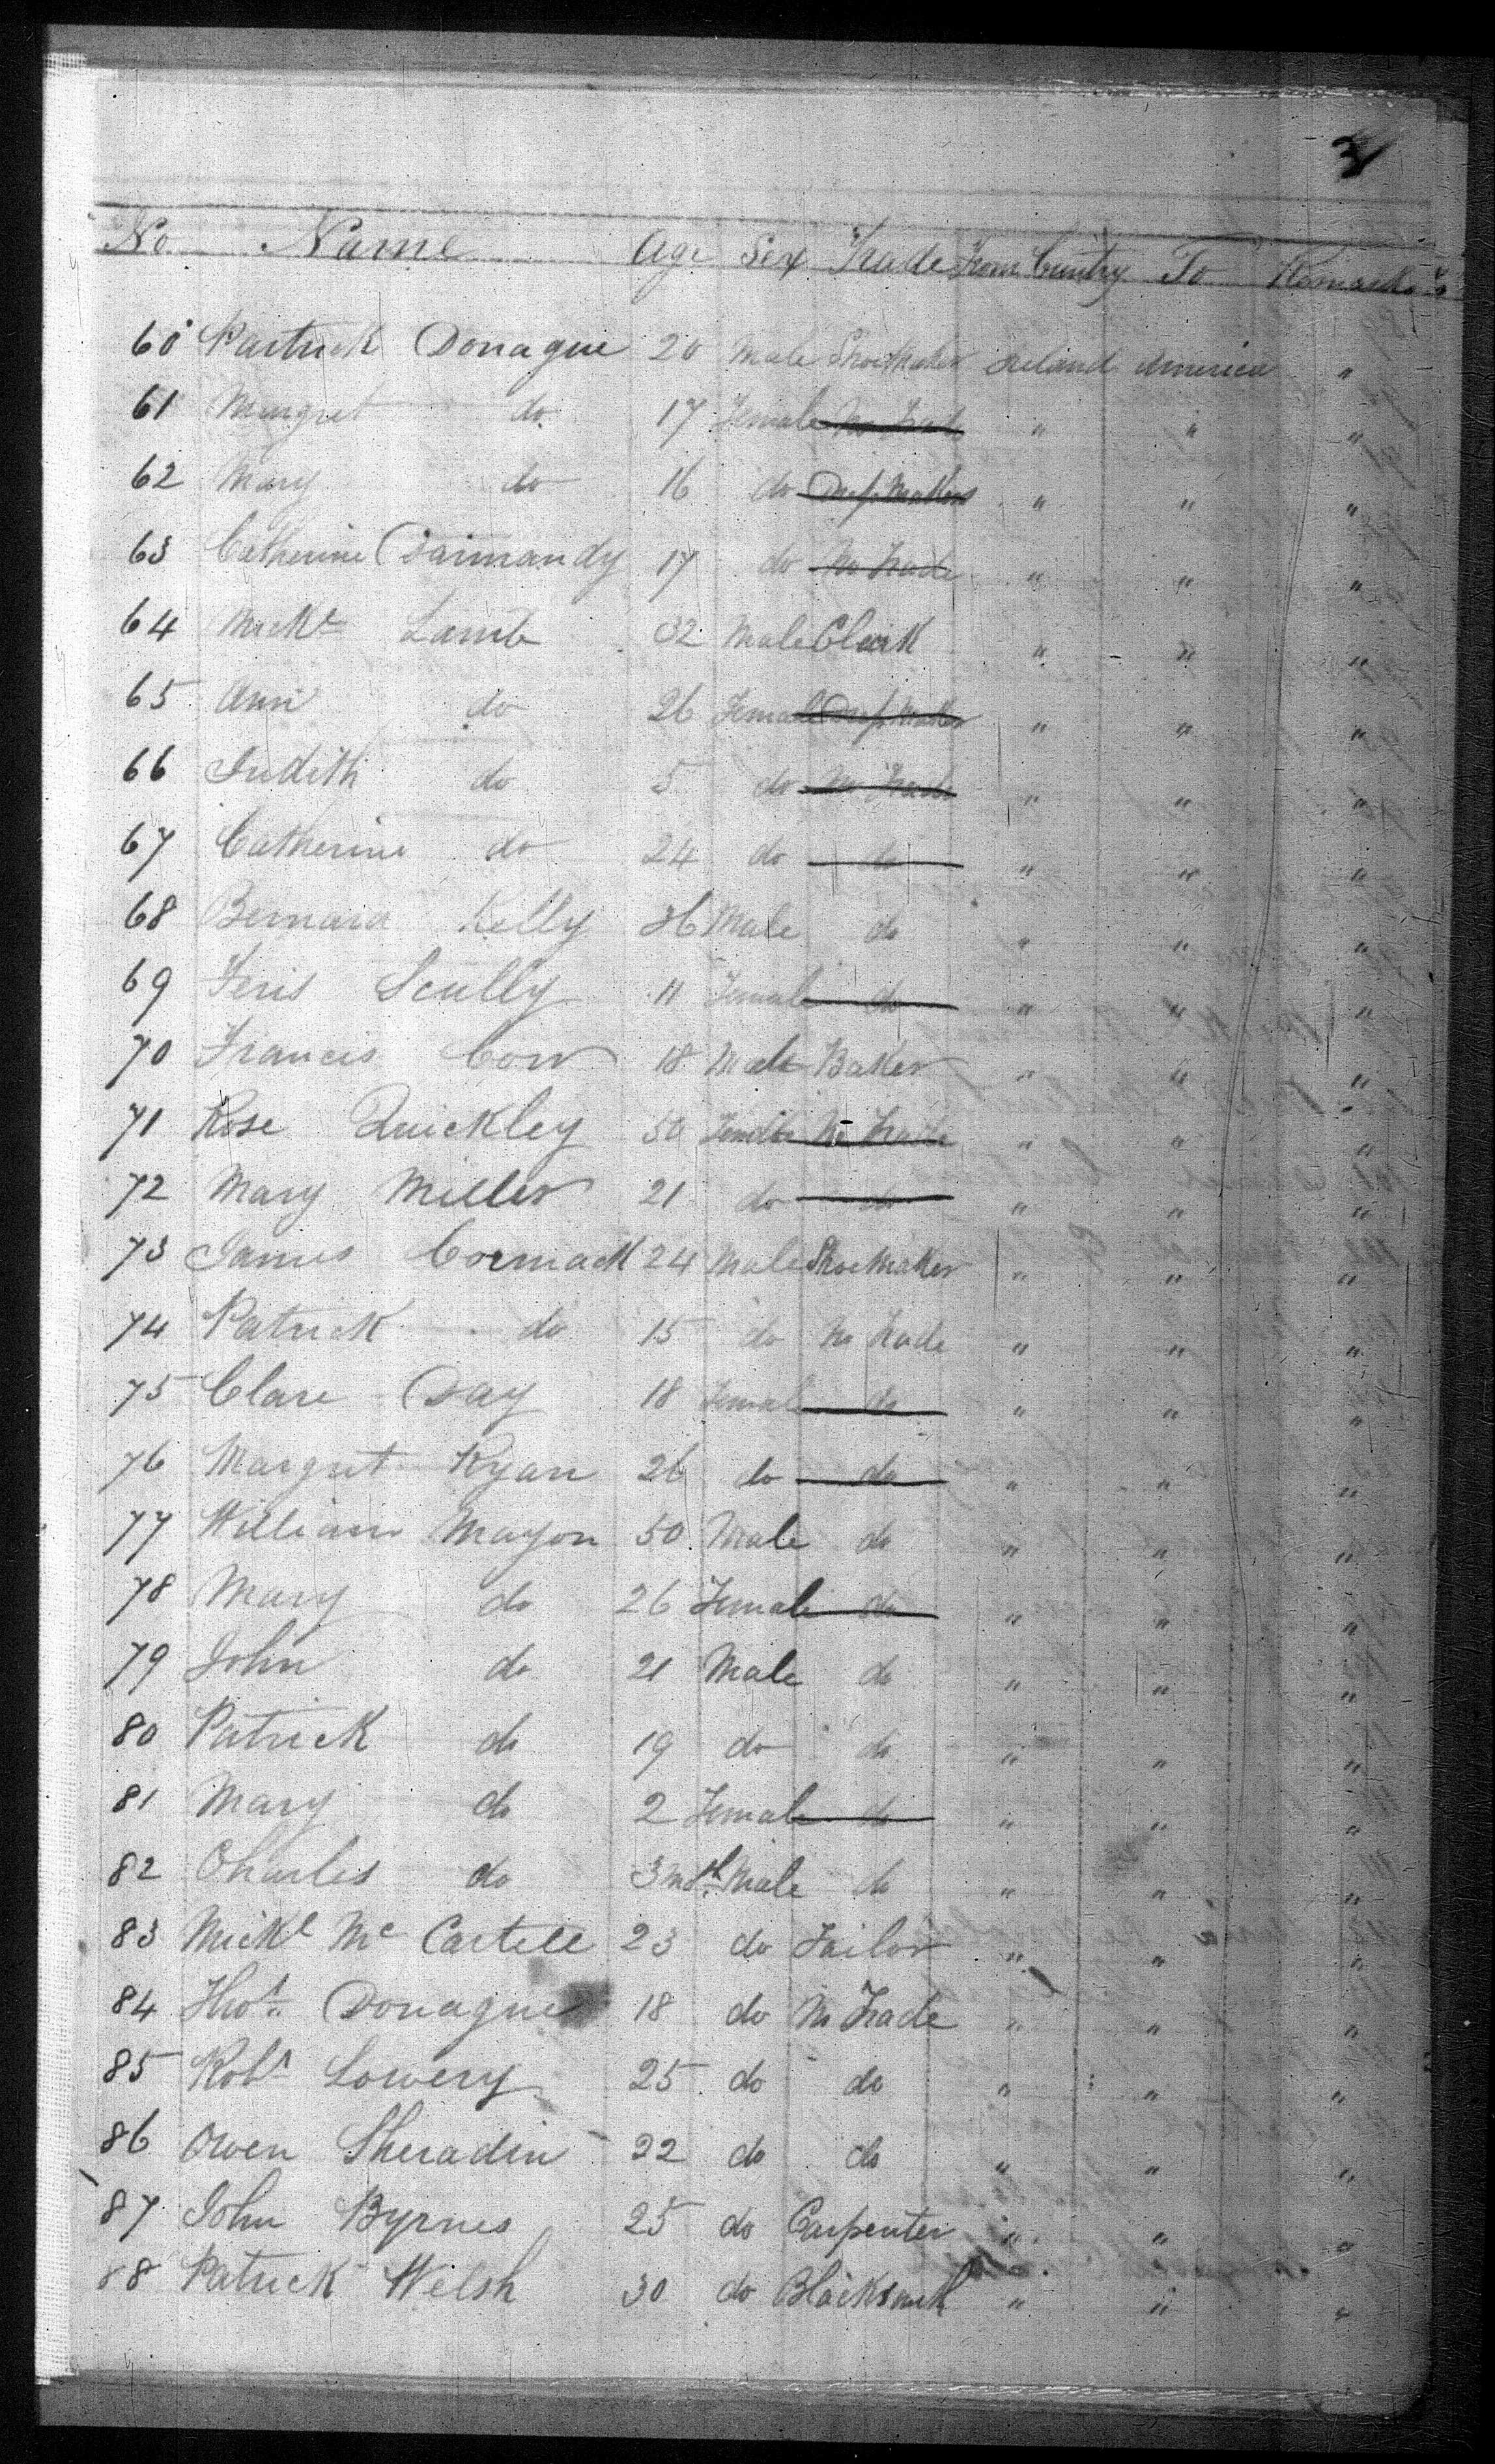 3
No Name Age Sex Trade From Cuntry To Remarks
60 Partrick Donague 20 Male ShoeMaker Ireland America "
61 Margret do 17 Female No Trade " " "
62 Mary do 16 do Dress Maker " " "
63 Catherine 17 do No Trade " " "
64 Lamb 32 Male Clerk " " "
65 Ann do 26 Female Dress Maker " " "
66 Judith do 5 do No Trade " " "
67 Catherine do 24 do do " " "
68 Bernard Kelly 36 Male do " " "
69 Scully 11 Female do " " "
70 Francis 18 Male Baker " " "
71 Rose Quickley 50 Female No Trade " " "
72 Mary Miller 21 do do " " "
73 James Cormack 24 Male ShoeMaker " " "
74 Patrick do 15 do No Trade " " "
75 Clare Day 18 Female do " " "
76 Margret Ryan 26 do do " " "
77 William Mayon 50 Male do " " "
78 Mary do 26 Female do " " "
79 John do 21 Male do " " "
80 Patrick do 19 do do " " "
81 Mary do 2 Female do " " "
82 Charles do 3 mth Male do " " "
83 Mickl Mc Cartell 23 do Tailor " " "
84 Thos Donague 18 do No Trade " " "
85 Robt Lowery 25 do do " " "
86 Owen Sheradin 22 do do " " "
87 John Byrnes 25 do Carpenter " " "
88 Patrick Welsh 30 do Blacksmith " " "